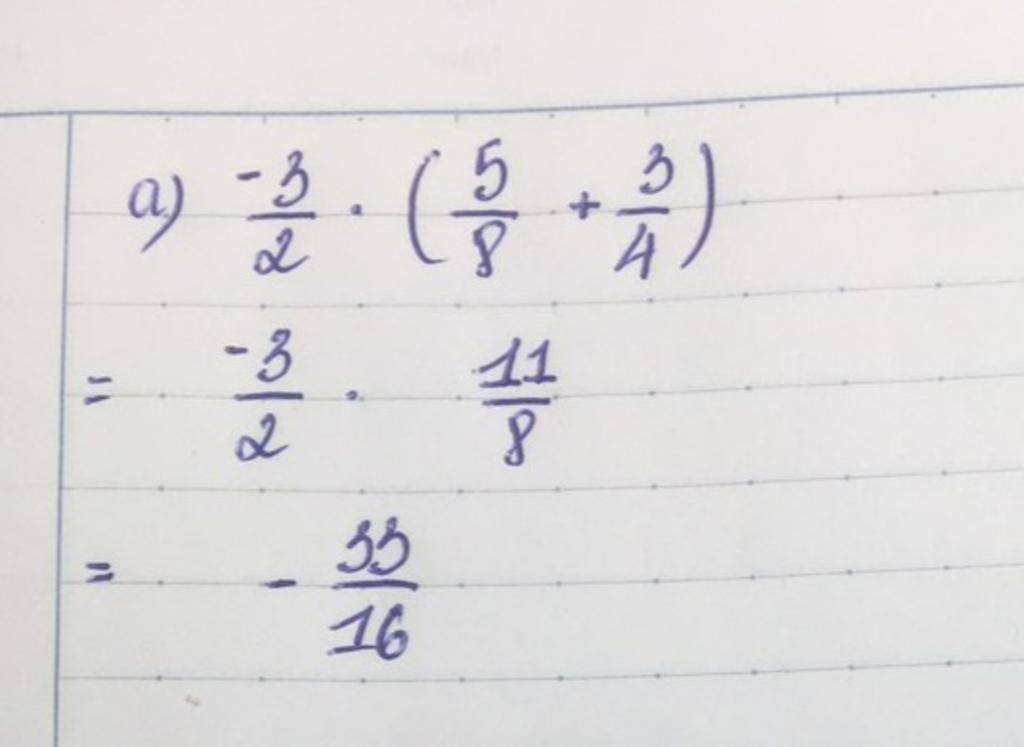 a) \frac{-3}{2} \cdot \left( \frac{5}{8} + \frac{3}{4} \right)
= \frac{-3}{2} \cdot \frac{11}{8}
= - \frac{33}{16}